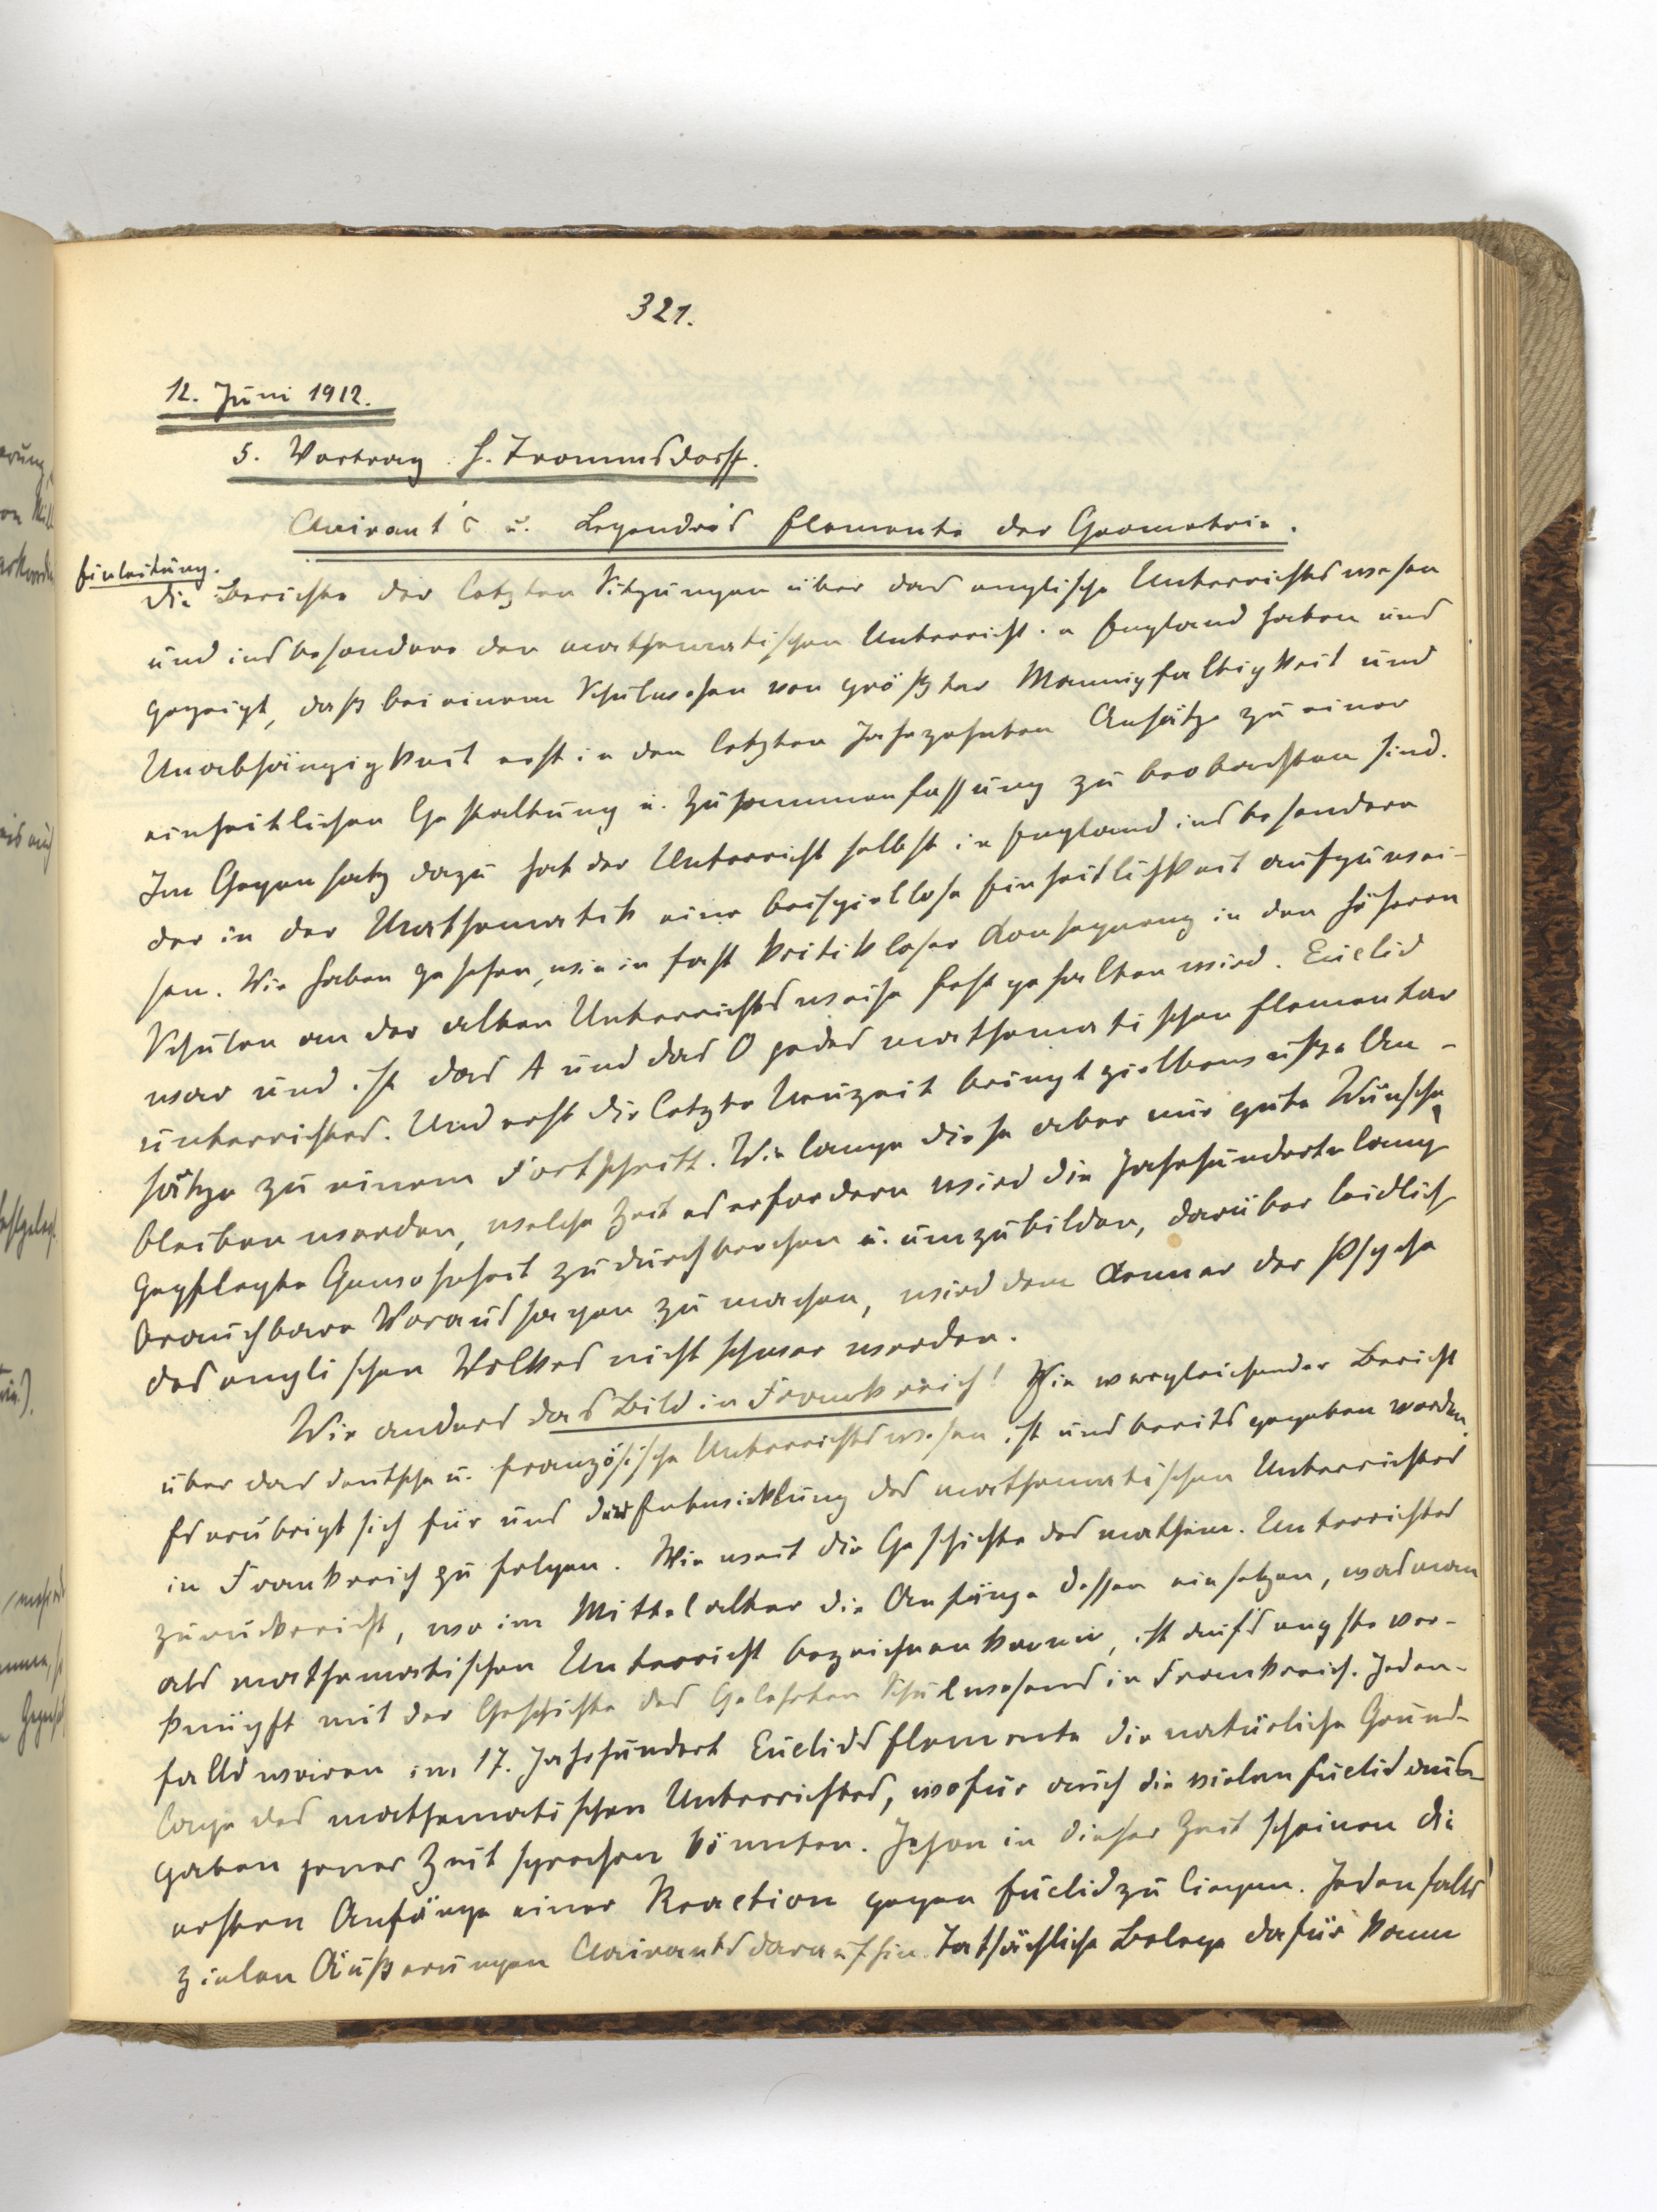 321.
12. Juni 1912.
5. Vortrag. H. Trommsdorff.
Clairaut's u. Legendre's Elemente der Geometrie.
Einleitung.
Die Berichte der letzten Sitzungen über das englische Unterrichtswesen
und insbesondere den mathematischen Unterricht in England haben uns
gezeigt, daß bei einem Schulwesen von größter Mannigfaltigkeit und
Unabhängigkeit erst in den letzten Jahrzehnten Ansätze zu einer
einheitlichen Gestaltung u. Zusammenfassung zu beobachten sind.
Im Gegensatz dazu hat der Unterricht selbst in England insbesondere
der in der Mathematik eine beispiellose Einheitlichkeit aufzuwei-
sen. Wir haben gesehen, wie in fast kritikloser Konsequenz in den höheren
Schulen an der alten Unterrichtsweise festgehalten wird. Euclid
war und ist das A und das O jedes mathematischen Elementar
unterrichtes. Und erst die letzte Neuzeit bringt zielbewußte An-
sätze zu einem Fortschritt. Wie lange diese aber nur gute Wünsche
bleiben werden, welche Zeit es erfordern wird die Jahrhunderte lang
gepflegte Gewohnheit zu durchbrechen u. umzubilden, darüber leidlich
brauchbare Voraussagen zu machen, wird dem Kenner der Psyche
des englischen Volkes nicht schwer werden.
Wie anders das Bild in Frankreich! Ein vergleichender Bericht
über das deutsche u. französische Unterrichtswesen ist uns bereits gegeben worden.
Es erübrigt sich für uns der Entwicklung des mathematischen Unterrichtes
in Frankreich zu folgen. Wie weit die Geschichte des mathem. Unterrichtes
zurückreicht, wo im Mittelalter die Anfänge dessen einsetzen, was man
als mathematischen Unterricht bezeichnen kann, ist aufs engste ver-
knüpft mit der Geschichte des Gelehrten Schulwesens in Frankreich. Jeden-
falls waren im 17. Jahrhundert Euclids Elemente die natürliche Grund-
lage des mathematischen Unterrichtes, wofür auch die vielen Euclidaus-
gaben jener Zeit sprechen könnten. Schon in dieser Zeit scheinen die
ersten Anfänge einer Reaction gegen Euclid zu liegen. Jedenfalls
zielen Äußerungen Clairauts darauf hin. Tatsächliche Belege dafür kann